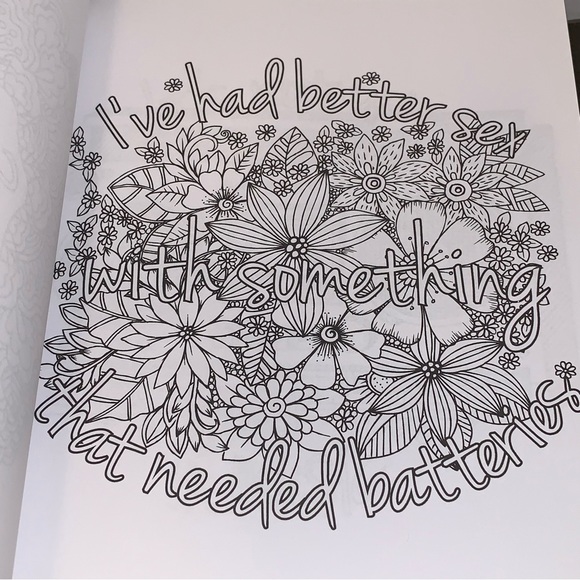 I've had better sex
with something
that needed batteries